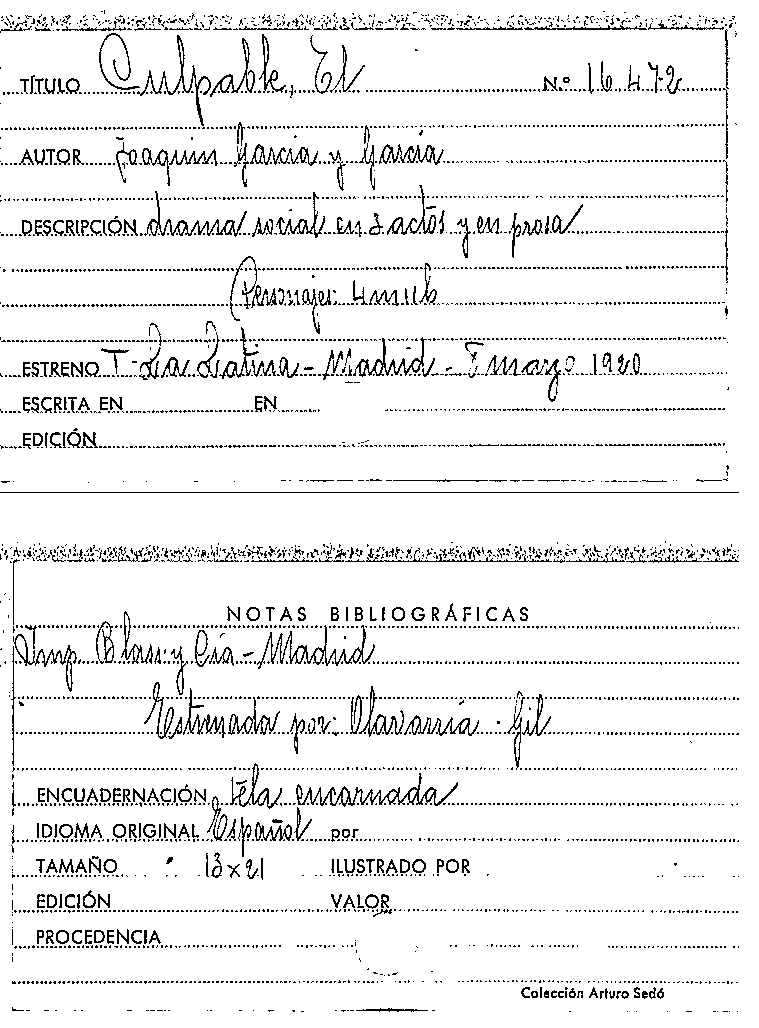 TÍTULO Culpable, El N.º 16.472
AUTOR Joaquin Garcia y Garcia
DESCRIPCIÓN drama social en 3 actos y en prosa
(Personajes: 4 m 11 h
ESTRENO T- La Latina - Madrid - 8 marzo 1920
ESCRITA EN EN
EDICIÓN
NOTAS BIBLIOGRÁFICAS
Imp. Blas y Cía - Madrid
Estrenada por: Olavarria - Gil
ENCUADERNACIÓN tela encarnada
IDIOMA ORIGINAL Español por
TAMAÑO 13 x 21 ILUSTRADO POR
EDICIÓN VALOR
PROCEDENCIA
Colección Arturo Sedó